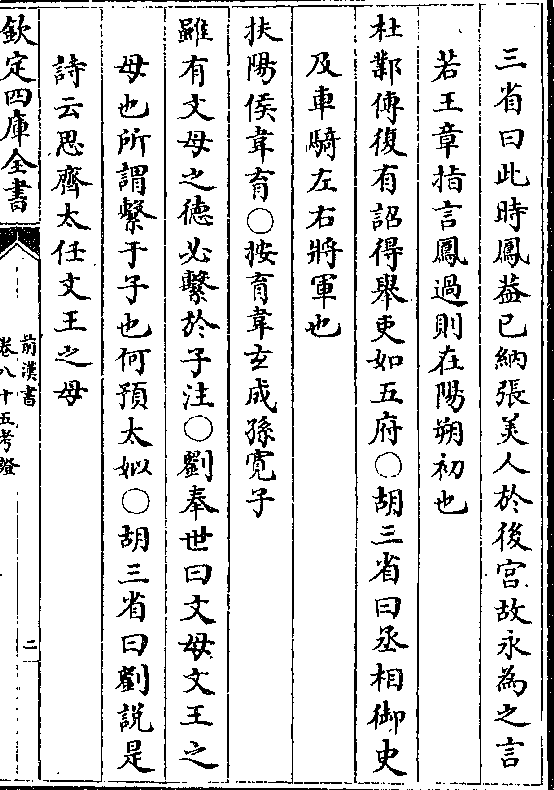 三省曰此時鳳葢已納張美人於後宮故永為之言
若王章指言鳳過則在陽朔初也
杜鄴傳復有詔得舉吏如五府○胡三省曰丞相御史
及車騎左右將軍也
扶陽侯韋育○按育韋玄成孫寛子
雖有文母之德必繫於子注○劉奉世曰文母文王之
母也所謂繫于子也何預太姒○胡三省曰劉說是
詩云思齊太任文王之母
欽定四庫全書
前漢書
卷八十五考證
二